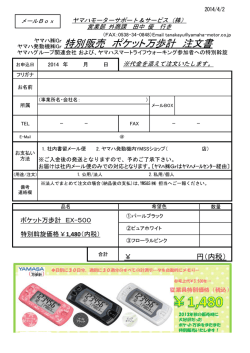 2014/4/2
メールＢｏｘ
ヤマハモーターサポート＆サービス（株）
営業部 外商課 田中 優 行き
（FAX:0538-34-0848）Email tanakasyu@yamaha-motor.co.jp
ヤマハ㈱Gr
ヤマハ発動機㈱Gr
特別販売 ポケット万歩計 注文書
ヤマハグループ関連会社 および、ヤマハスマートライフウォーキング参加者への特別斡旋
お申込日
2014 年 月 日
※代金を添えて注文いたします。
フリガナ
お名前
所属
（事業所名・会社名： ）
メールBOX
TEL
－ －
FAX
－ －
E-Mail
＠
お支払い方法
1. 社内書留メール便 2. ヤマハ発動機内YMSSショップ（ 店）
※ご入金後の発送となりますので、予めご了承下さい。
お届けは社内メール便のみでの対応となります。
（用途/注文）
1.公用
2.個人用
（社用／個人）
1. 社用
2. 個人用
備考連絡欄
品名
希望色
数量
ポケット万歩計 EX-500
特別斡旋価格￥1,480（内税）
①パールブラック
②ピュアホワイト
③フローラルピンク
合計
￥
円（内税）
YAMASA
万歩計
￥1,480